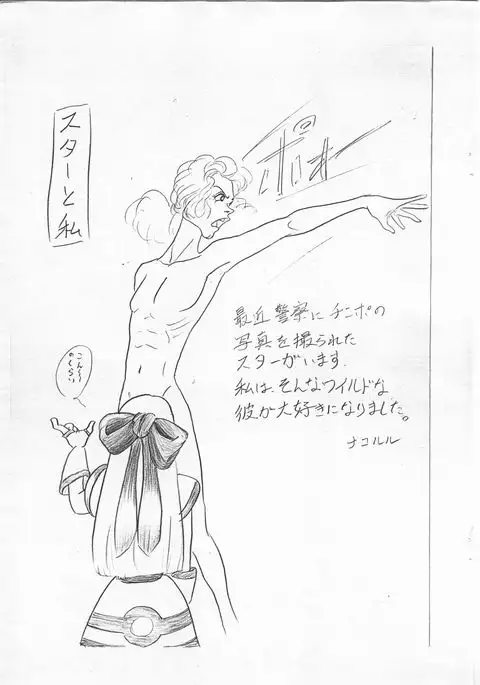 スターと私
最近警察にチンポの
写真を撮られた
スターがいます.
私は、そんなワイルドな
彼が大好きになりました。
ナコルル